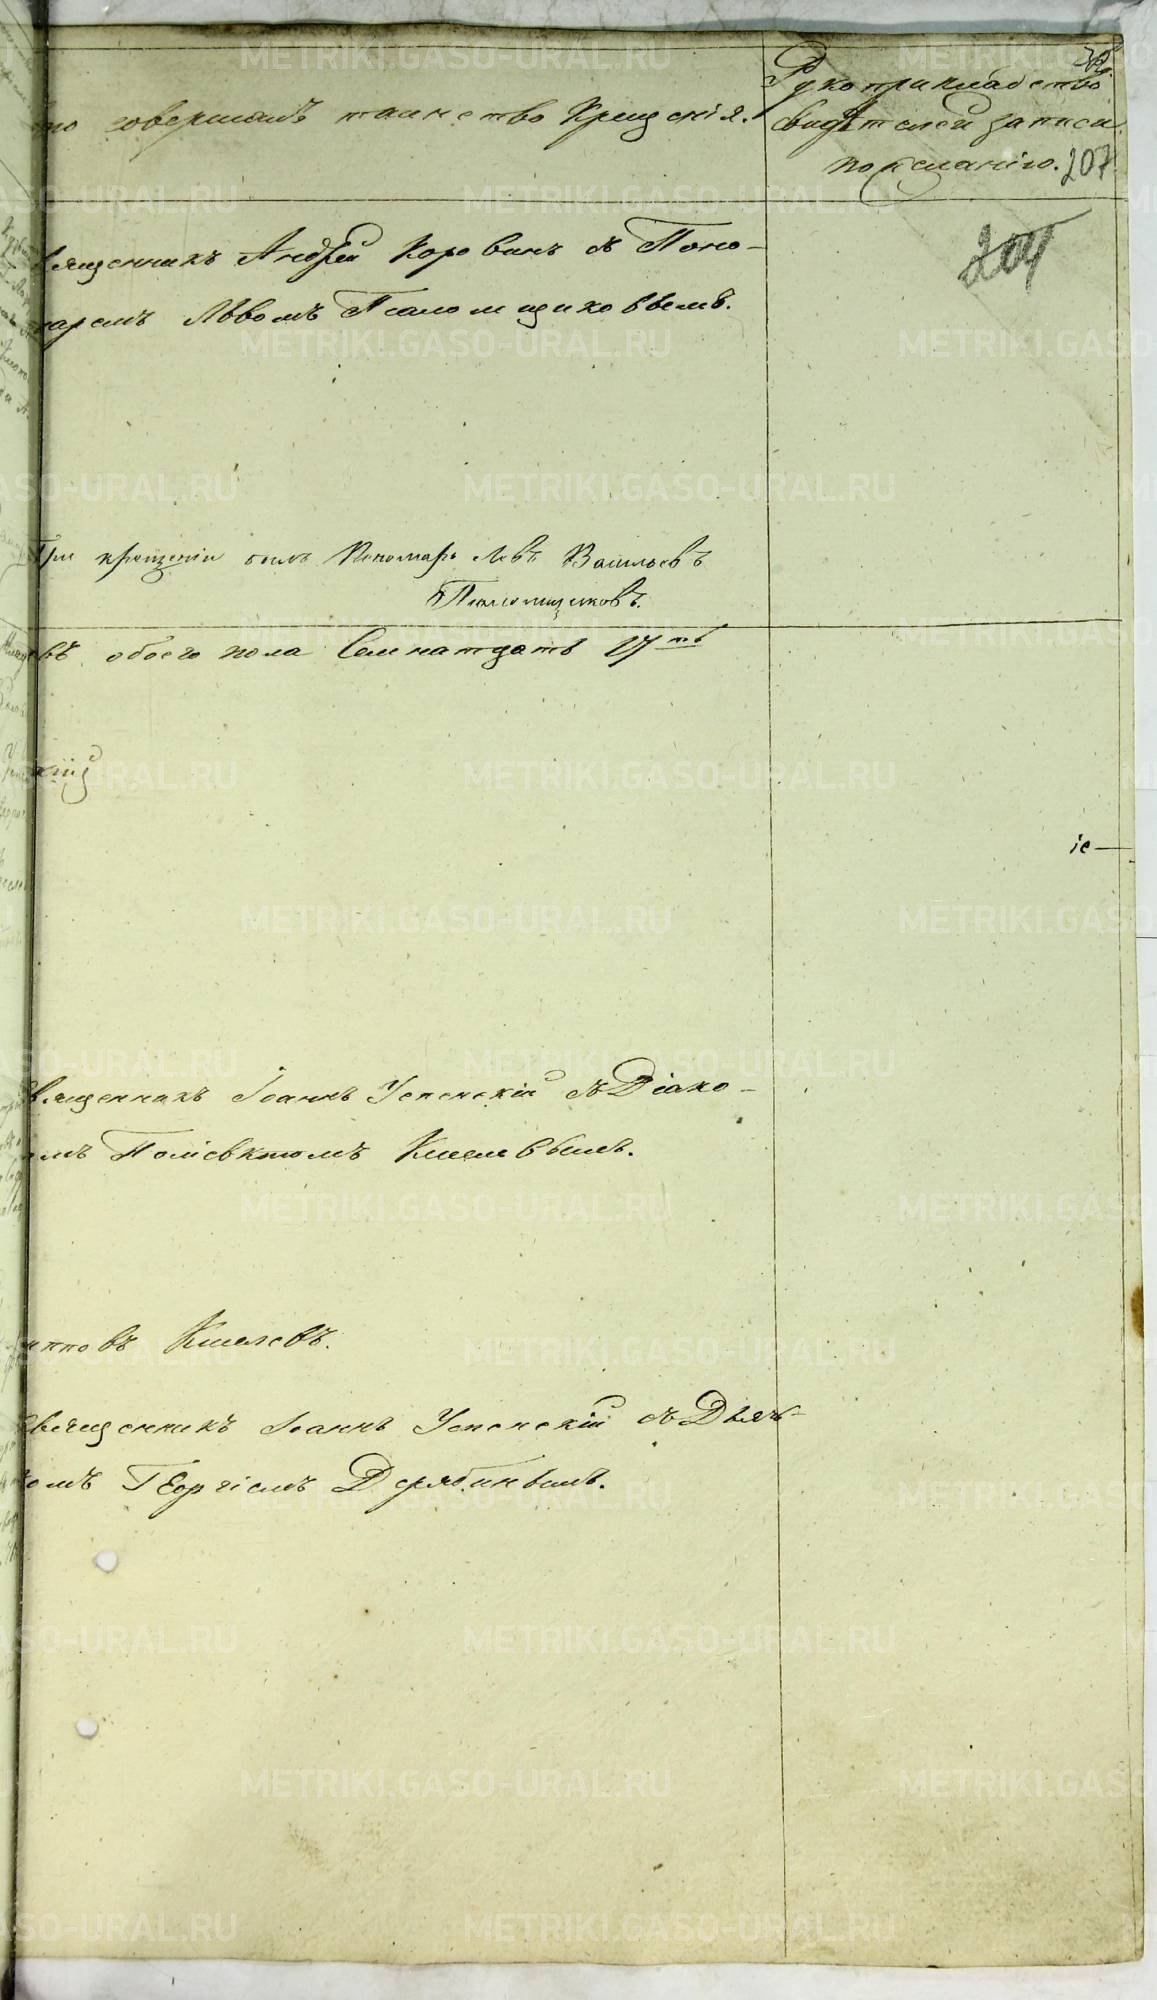 то совершалъ таинство крещенія.
Рукоприкладство
свидѣтелей записи
по желанію. 207
204
вященникъ Андрей Коровинъ съ Поно-
аремъ Львомъ Псаломщиковвемъ.
При крещеніи былъ Пономарь Левъ Васильевъ
Псаломщиковъ.
въ обоего пола Семнатдать 17ть
кій
іе
вященникъ Іоаннъ Успенскій съ Діако-
мъ Поліевктомъ Киселевымъ.
ипповъ Киселевъ.
вященникъ Іоаннъ Успенскій съ Дьяч-
омъ Георгіемъ Дерябинымъ.
METRIKI.GASO-URAL.RU